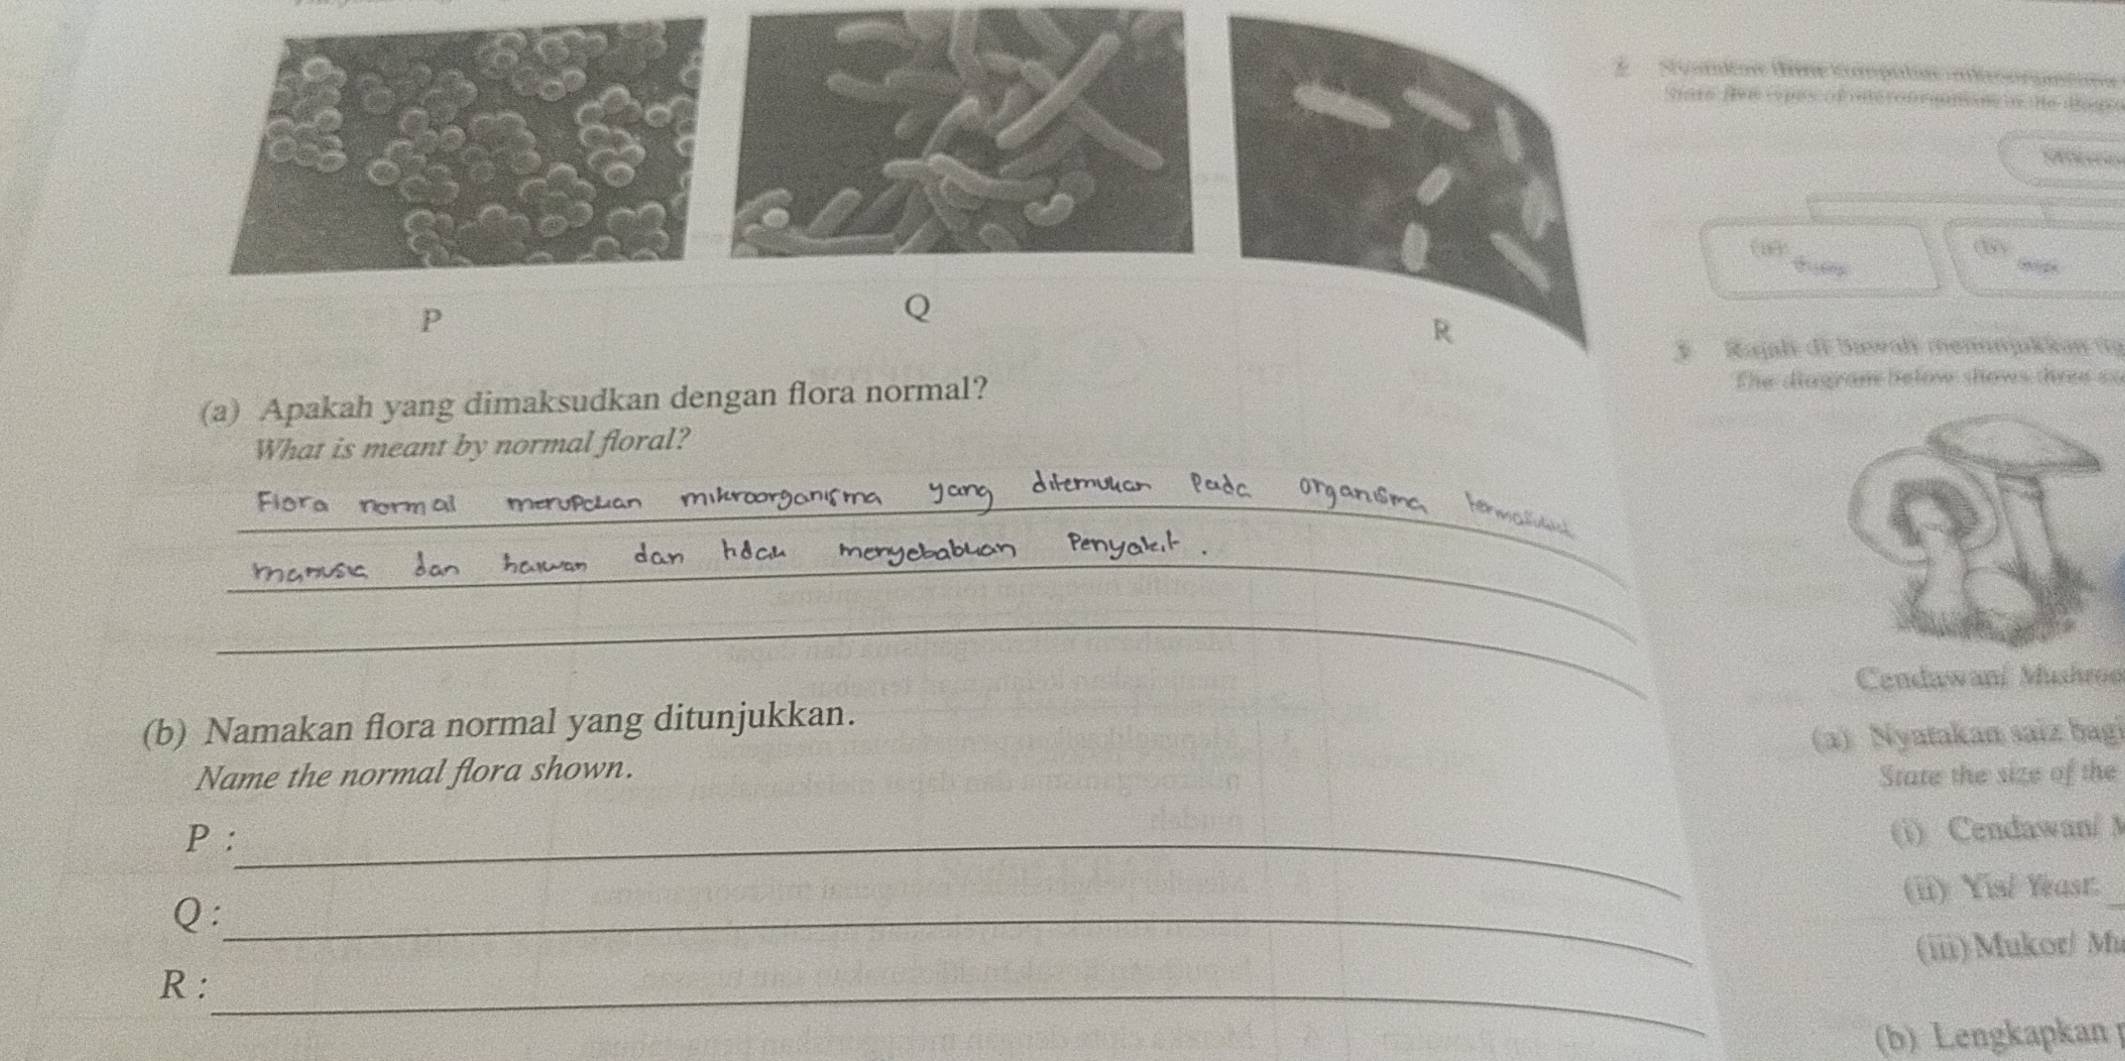 P
Q
R
(a) Apakah yang dimaksudkan dengan flora normal?
What is meant by normal floral?
Flora normal merupakan mikroorganisma yang ditemukan pada organisma termasuk
manusia dan haiwan dan tidak menyebabkan penyakit.
(b) Namakan flora normal yang ditunjukkan.
Name the normal flora shown.
P :
Q :
R :
2
(a)
(b)
3 Rajah di bawah menunjukkan
The diagram below shows three
Cendawan/
(a) Nyatakan saiz bagi
State the size of the
(i) Cendawan/
(ii) Yis/ Yeast:
(iii) Mukor/
(b) Lengkapkan